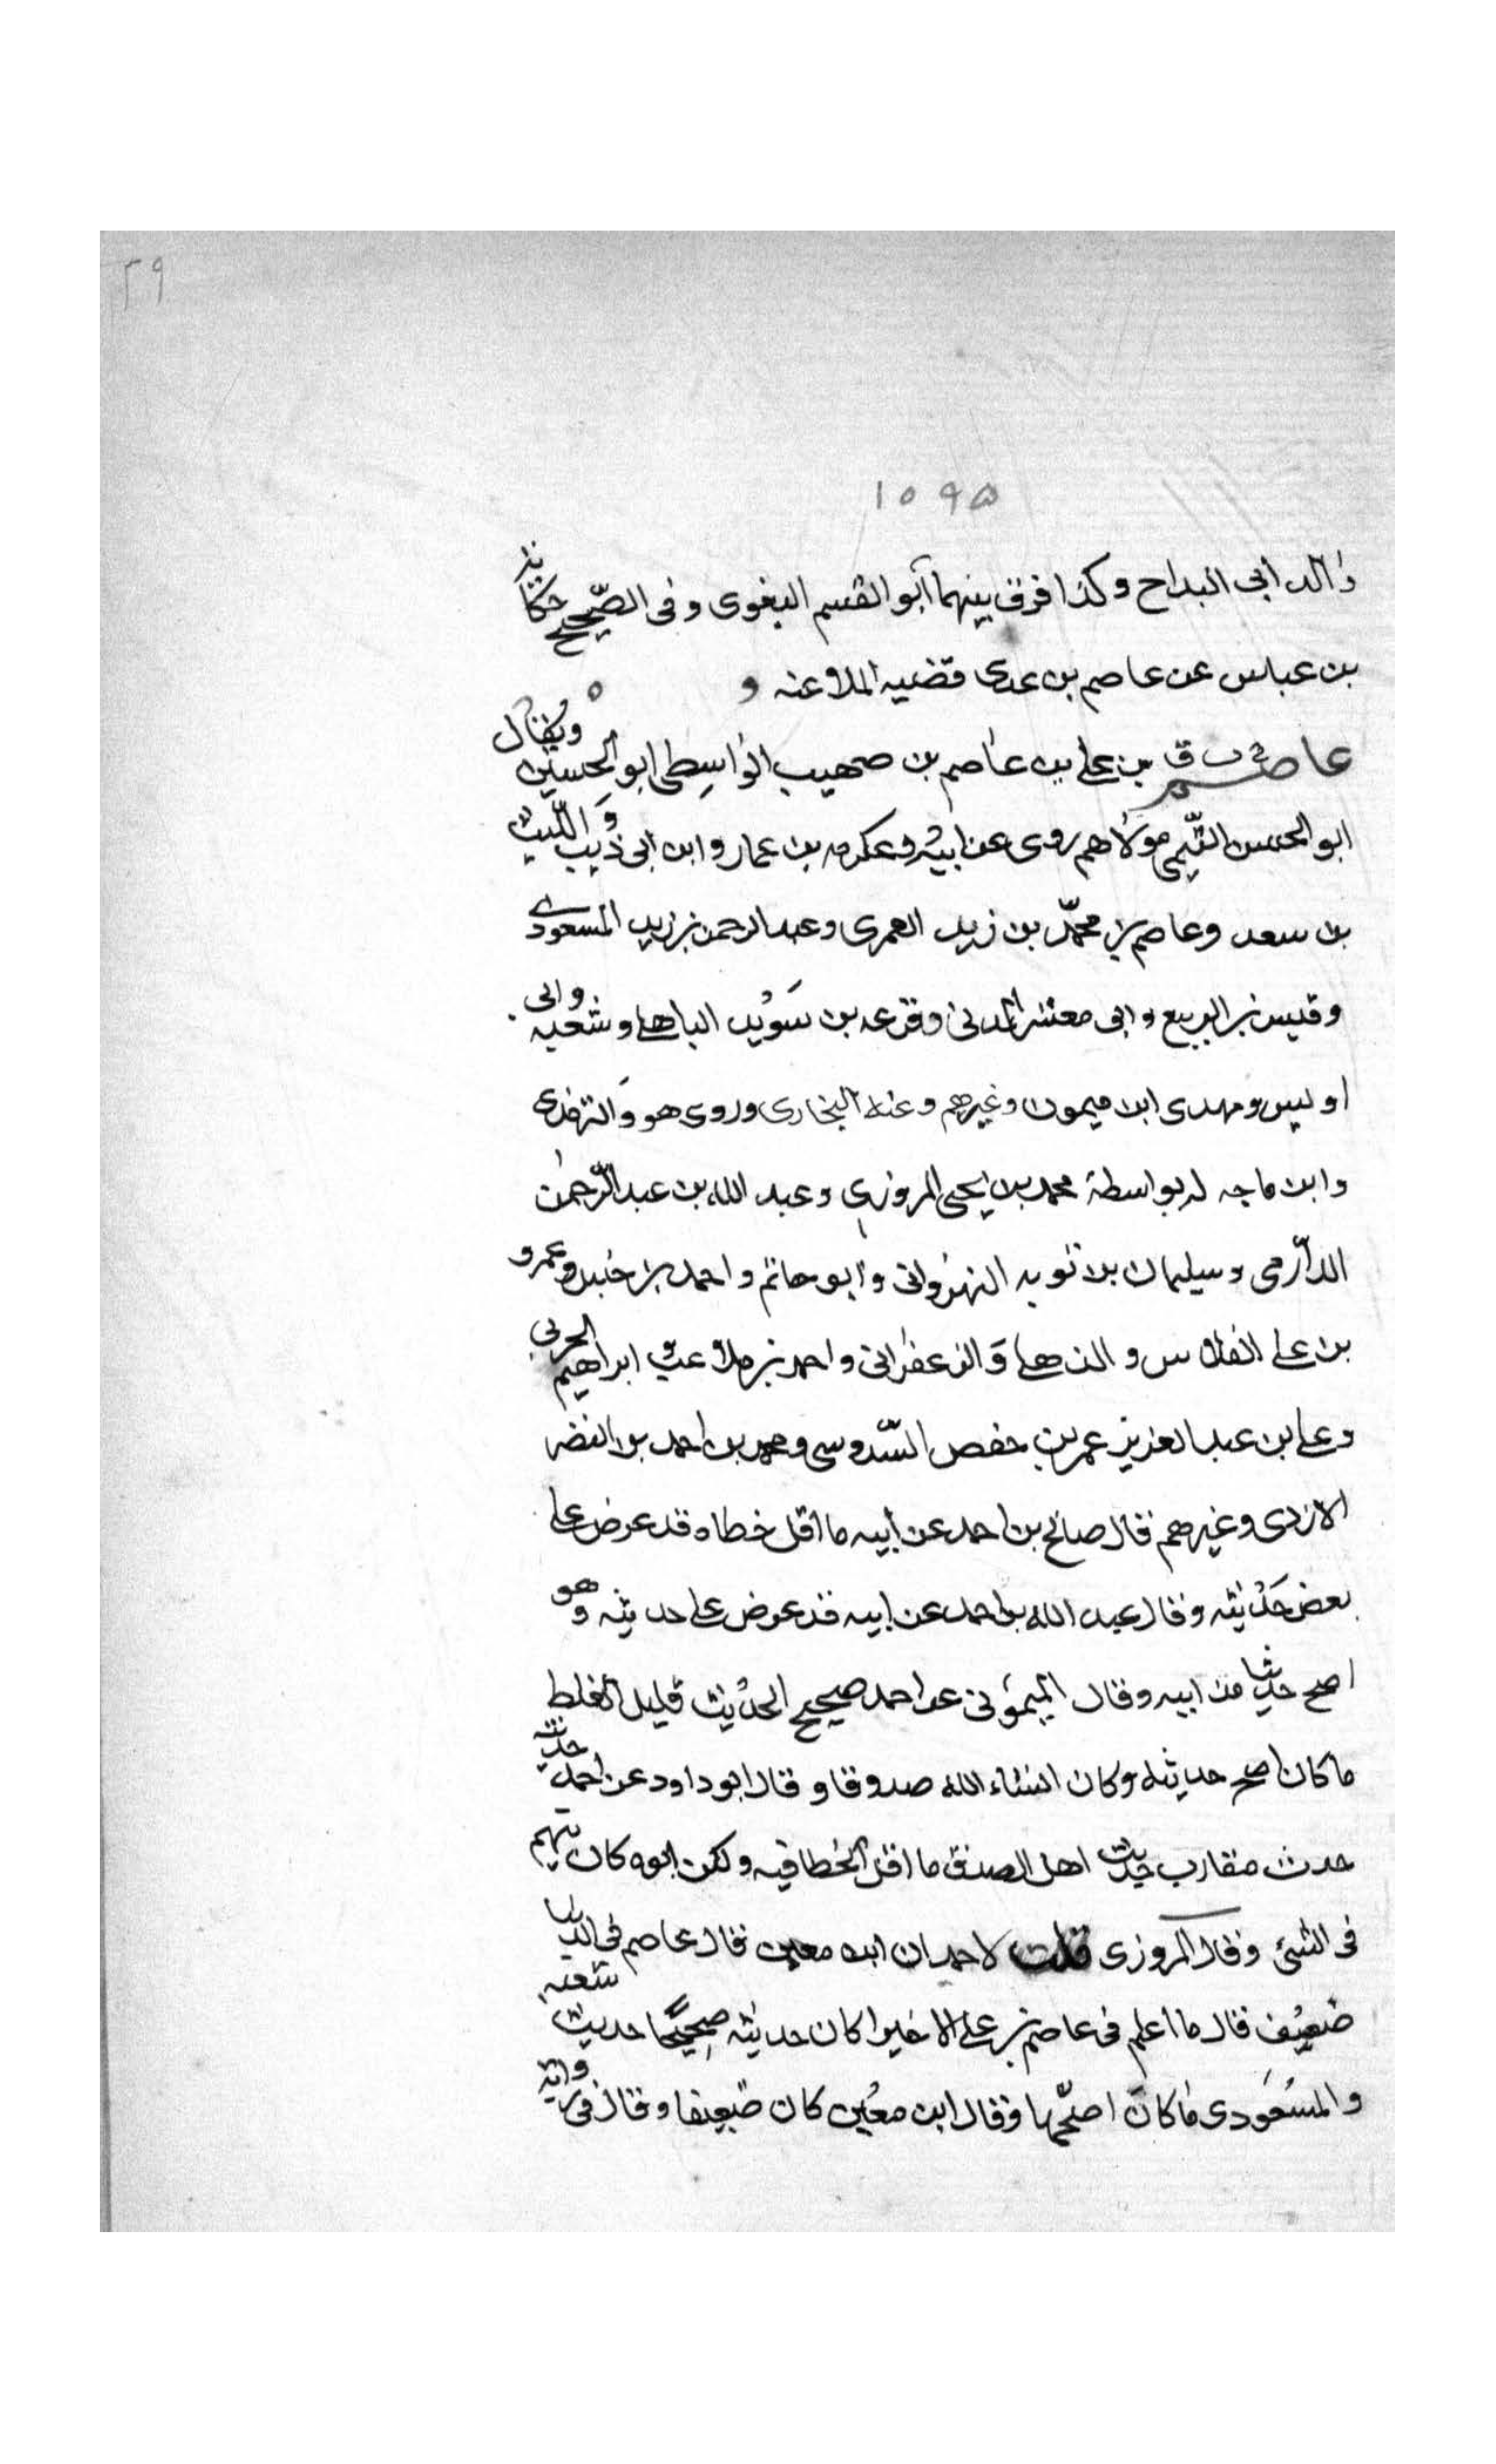 ٢٩
١٠٩٥
والد ابى البداح وكذا فرق بينهما ابو القسم البغوى وفى الصّحيح حكاية
بن عباس عن عاصم بن عدى قضيه الملاعنه و ه
عاصم خ ت ق بن على بن عاصم بن صهيب الواسِطى ابو الحسين ويُقال
ابو الحسن التّيمى مولاهم روى عن ابيه وعكرمه بن عمار وابن ابى ذيب وَ اللّيث
بن سعد وعاصم بن محمّد بن زيد العمرى وعبد الرحمن بن زيد المسعودى
وقيس بن الربيع وابى معشر المدنى وقزعه بن سَوُيد الباهلى وشعبه وابى
اويس ومهدى ابن ميمون وغيرهم وعنه البخارى وروى هو وَالترمذى
وابن ماجه له بواسطة محمد بن يحيى المروزى وعبد الله بن عبد الرّحمن
الدّارمى وسليمان بن توبه النهروانى وابو حاتم واحمد بن حنبل وعمرو
بن على الفلاس والذهلى وَالزعفرانى واحمد بن ملاعب و ابراهيم الحربى
وعلى بن عبد العزيز عمر بن حفص السّدوسى ومحمد بن احمد بن النضر
الازدى وغيرهم قال صالح بن احمد عن ابيه ما اقل خطاه قد عرض على
بعض حَدُيثه وقال عبد الله بن احمد عن ابيه قد عرض على حديثه وهو
اصح حديثا من ابيه وقال الميمُونى عن احمد صحيح الحدُيث قليل الغلط
ما كان اصح حديثه وكان انشاء الله صدوقا وقال ابو داود عن احمد حديثه
حدث مقارب حديث اهل الصدق ما اقل الخطا فيه ولكن ابوه كان يتهم
فى الشئ وقال المروزى قلت لاحمد ان ابن معين قال عاصم فى الدنيا
ضعيُف قال ما اعلم فى عاصم بن على الا خيرا كان حديثه صحِيحًا حديث شعبه
والمسُعَودى ما كان اصحّها وقال ابن معُين كان ضَعيفا وقال فى رواية